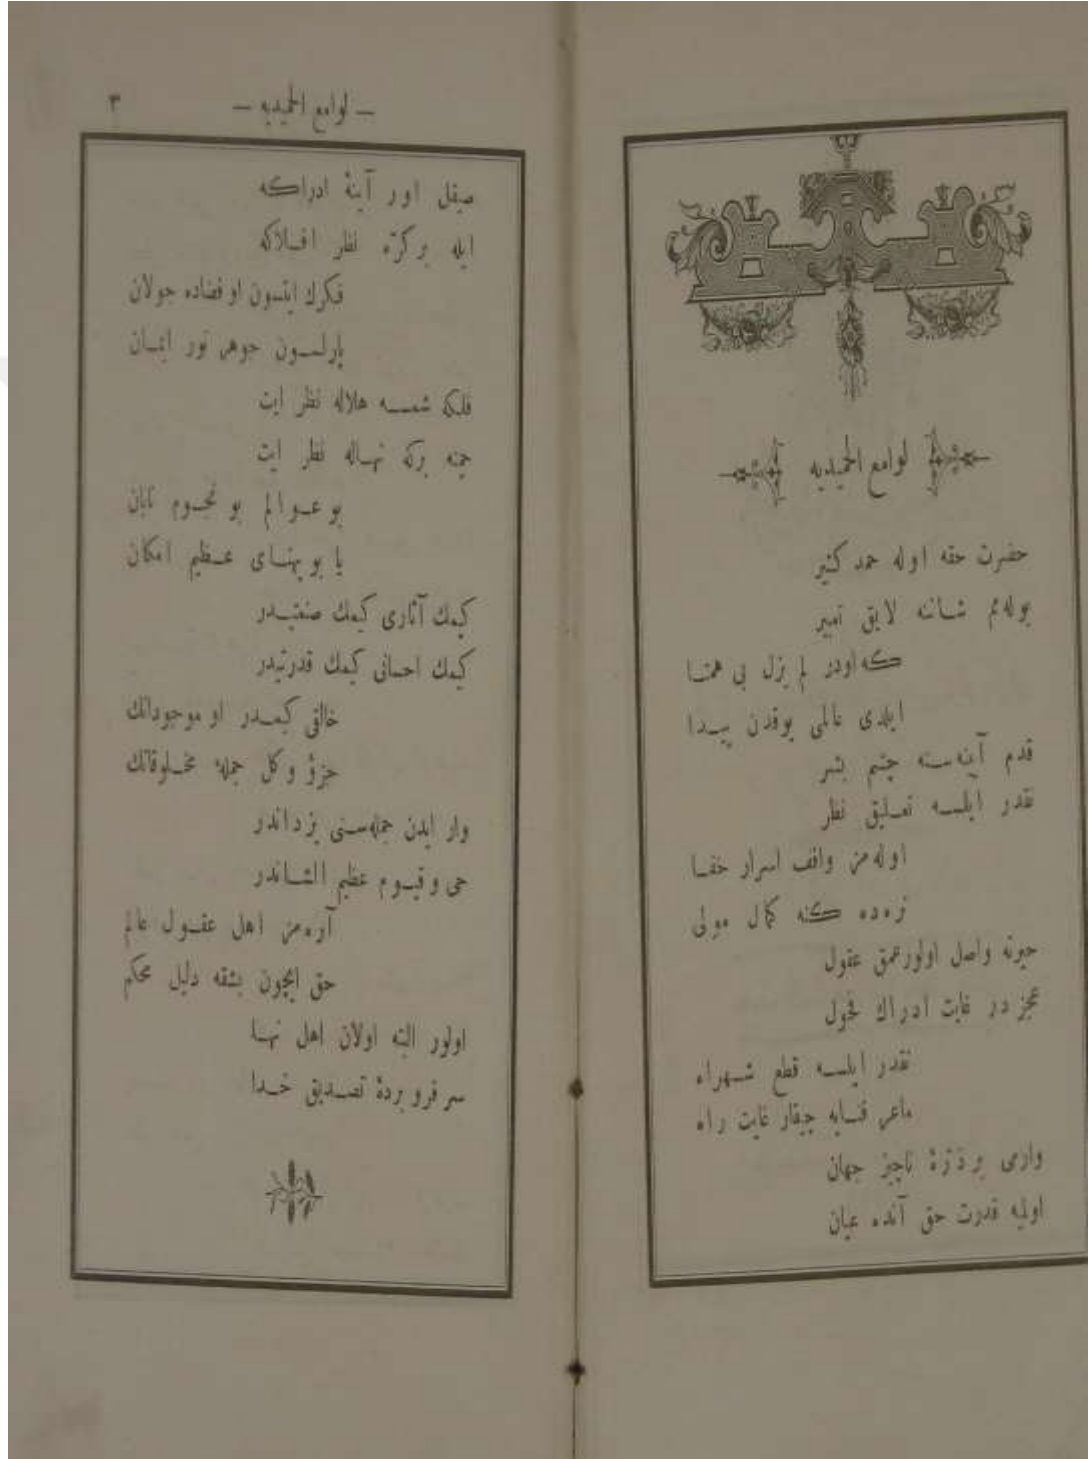 لوامع الحمیدیه
حضرت حقه اوله حمد كثیر
بوله‌مم شانـنه لایق تعبیر
كه اودر لم یزل بی همتـا
ایلدی عالمی یوقدن پیـدا
قدم آینه‌سـنه چشم بشر
نقدر ایلسـه تعـلیق نظر
اوله‌مز واقف اسرار خفـا
نره‌ده كنه كمال مولی
حیرته واصل اولور عمق عقول
عجز در غایت ادراك فحول
نقدر ایلسـه قطع شـهراه
ماعر فنـایه چیقار غایت راه
وارمی بر ذرّۀ ناچیز جهان
اولمیه قدرت حق آنده عیان
— لوامع الحمیدیه — ٣
صیقل اور آینۀ ادراكه
ایله بر كرّه نظر افـلاكه
فكرك ایتـسون او فضاده جولان
پارلـسـون جوهر نور ایمـان
فلكه شمسـه هلاله نظر ایت
چمنه بركه نهـاله نظر ایت
بو عـوالم بو نجـوم تابان
یا بو پهنـای عـظیم امكان
كیمك آثاری كیمك صنعتیـدر
كیمك احسانی كیمك قدرتیدر
خالقی كیمـدر او موجوداتك
جزؤ و كل جملۀ مخـلوقاتك
وار ایدن جمله‌سـنی یزداندر
حی و قیـوم عظیم الشـاندر
آره‌مز اهل عقـول عالم
حق ایچون بشقه دلیل محكم
اولور البته اولان اهل نهـا
سر فرو بردۀ تصـدیق خـدا